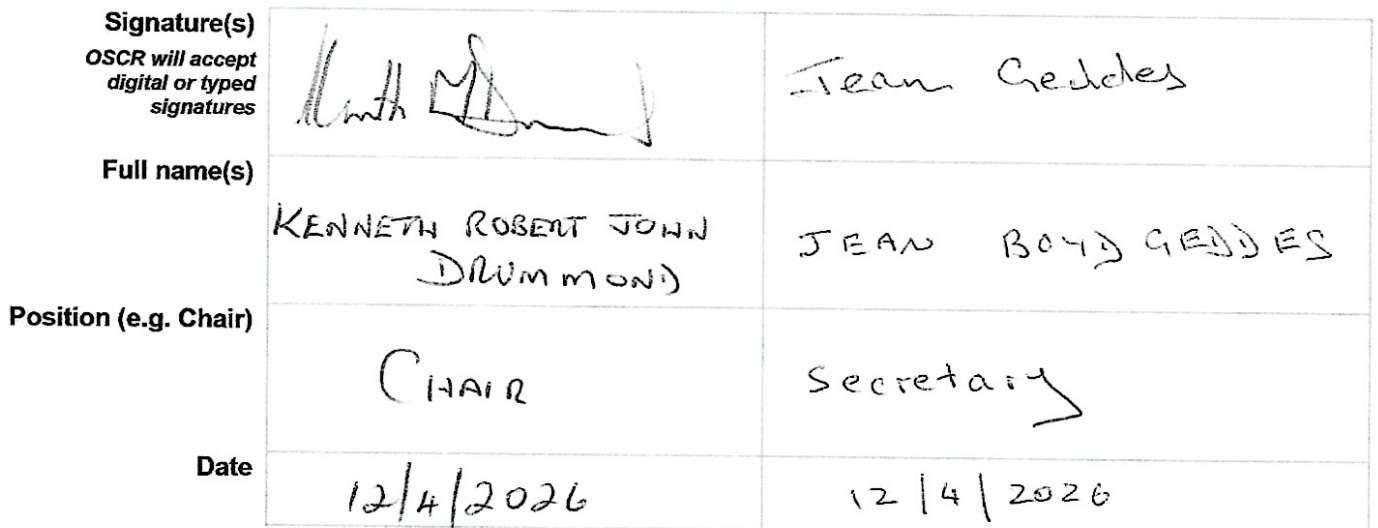 Signature(s)
OSCR will accept
digital or typed
signatures
Jean Geddes
Full name(s)
KENNETH ROBERT JOHN
DRUMMOND
JEAN BOYD GEDDES
Position (e.g. Chair)
CHAIR
Secretary
Date
12/4/2026
12/4/2026